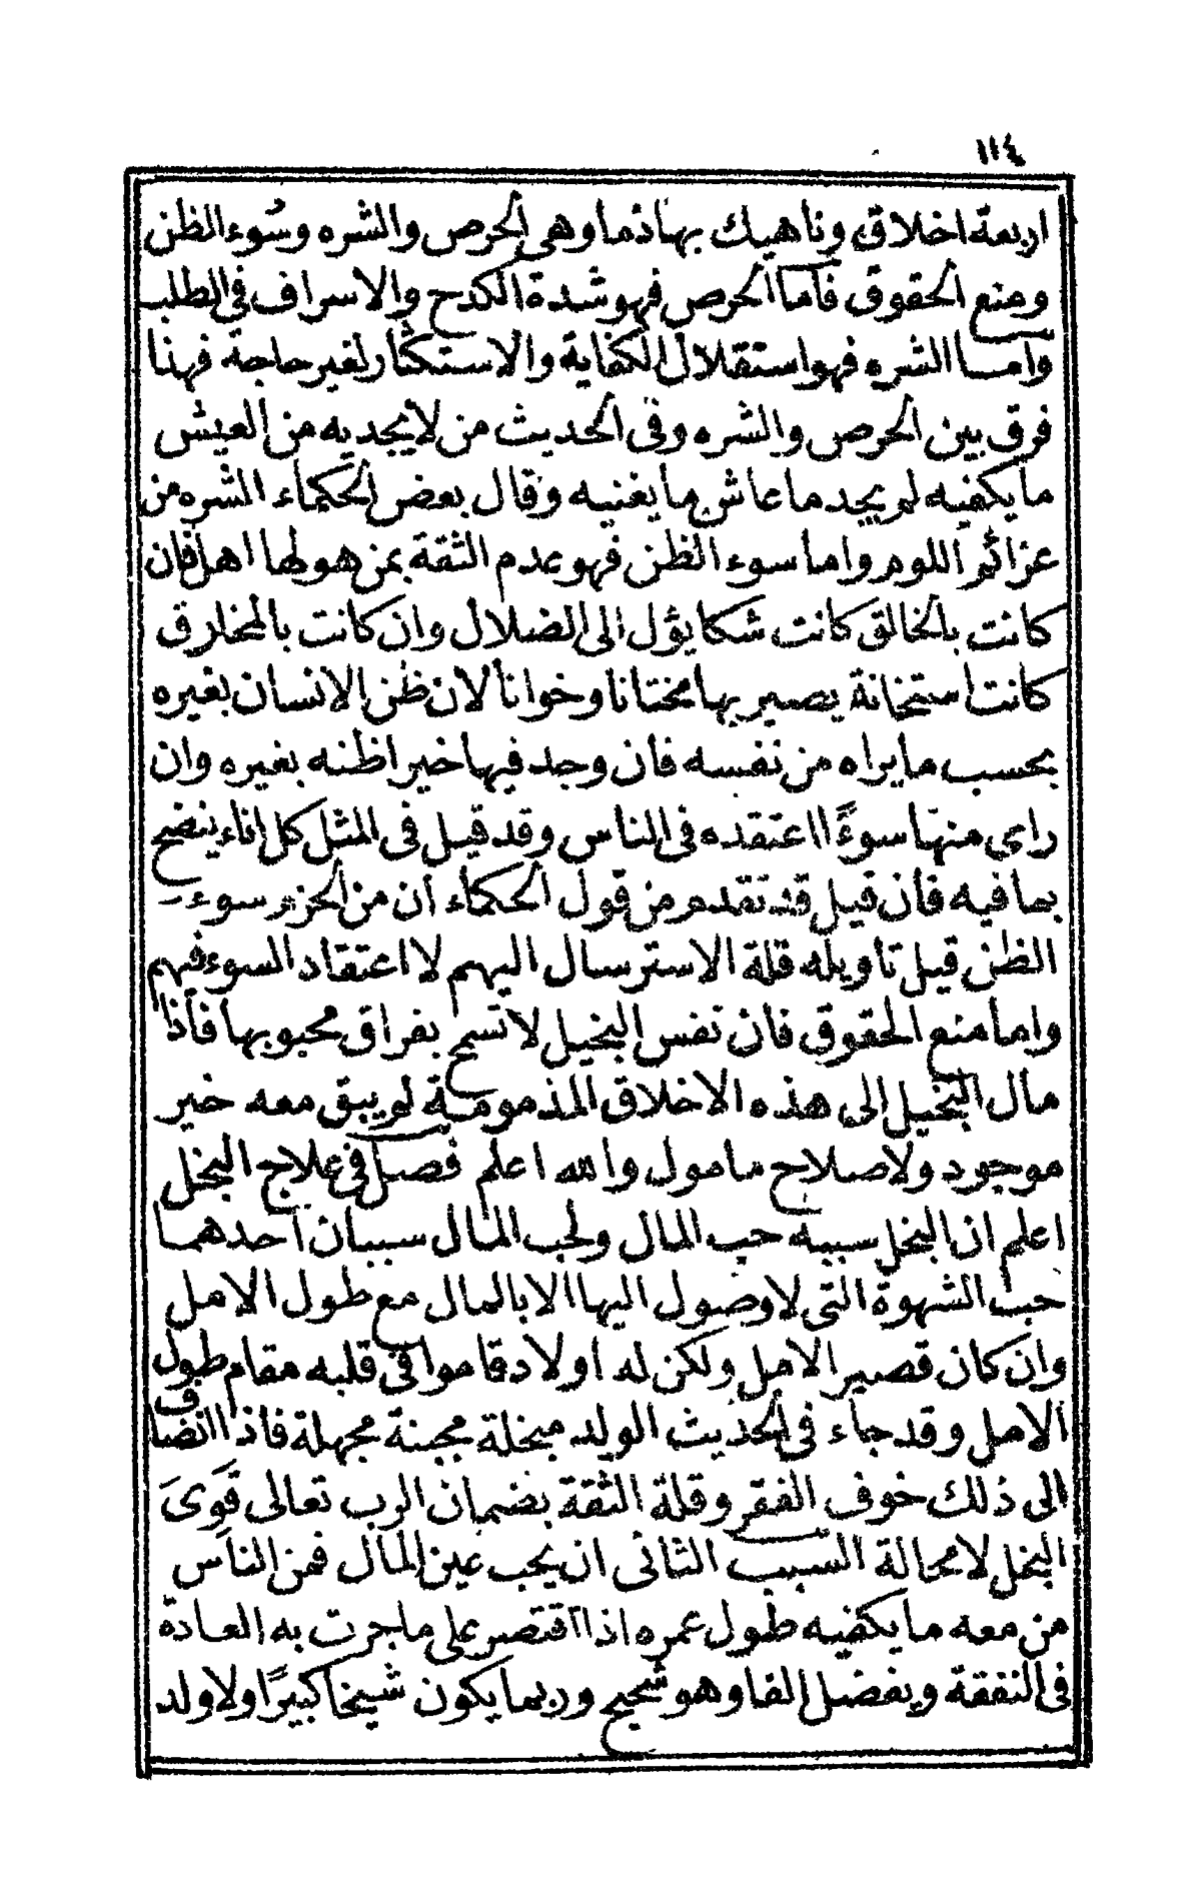 ١١٤
اربعة اخلاق وناهيك بها ذما وهى الحرص والشره وسُوء الظن
ومنع الحقوق فاما الحرص فهو شدة الكدح والاسراف فى الطلب
واما الشره فهو استقلال الكفاية والاستكثار لغير حاجة فهذا
فرق بين الحرص والشره وفى الحديث من لا يجديه من العيش
ما يكفيه لم يجد ما عاش ما يغنيه وقال بعض الحكماء الشره من
عزائم اللوم واما سوء الظن فهو عدم الثقة بمن هو لها اهل فان
كانت بالخالق كانت شكا يؤل الى الضلال وان كانت بالمخلوق
كانت استخانة يصير بها مختانا وخوانا لان ظن الانسان بغيره
بحسب ما يراه من نفسه فان وجد فيها خيرا ظنه بغيره وان
راى منها سوءًا اعتقده فى الناس وقد قيل فى المثل كل اناء ينضح
بما فيه فان قيل قد تقدم من قول الحكماء ان من الحزم سوء
الظن قيل تاويله قلة الاسترسال اليهم لا اعتقاد السوء فيهم
واما منع الحقوق فان نفس البخيل لا تسمح بفراق محبوبها فاذا
مال البخيل الى هذه الاخلاق المذمومة لم يبق معه خير
موجود ولا صلاح مامول والله اعلم فصل فى علاج البخل
اعلم ان البخل سببه حب المال ولحب المال سببان احدهما
حب الشهوة التى لا وصول اليها الا بالمال مع طول الامل
وان كان قصير الامل ولكن له اولاد قاموا فى قلبه مقام طول
الامل وقد جاء فى الحديث الولد مبخلة مجبنة مجهلة فاذا انضاف
الى ذلك خوف الفقر وقلة الثقة بضمان الرب تعالى قَوىَ
البخل لا محالة السبب الثانى ان يحب عين المال فمن الناس
من معه ما يكفيه طول عمره اذا اقتصر على ما جرت به العادة
فى النفقة ويفضل الفا وهو شحيح وربما يكون شيخا كبيرًا ولا ولد